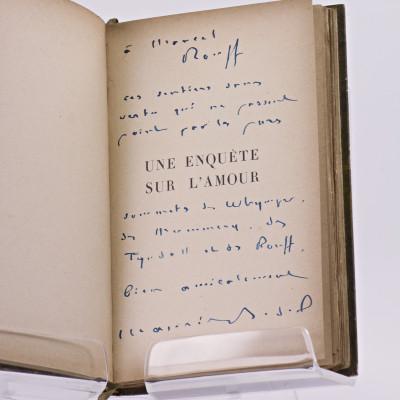 à Marcel
Rouff
ces sentiers sans
vertu qui ne passent
point par les purs
UNE ENQUÊTE
SUR L'AMOUR
sommets de Whymper,
de Mummery, de
Tyndall et de Rouff.
bien amicalement